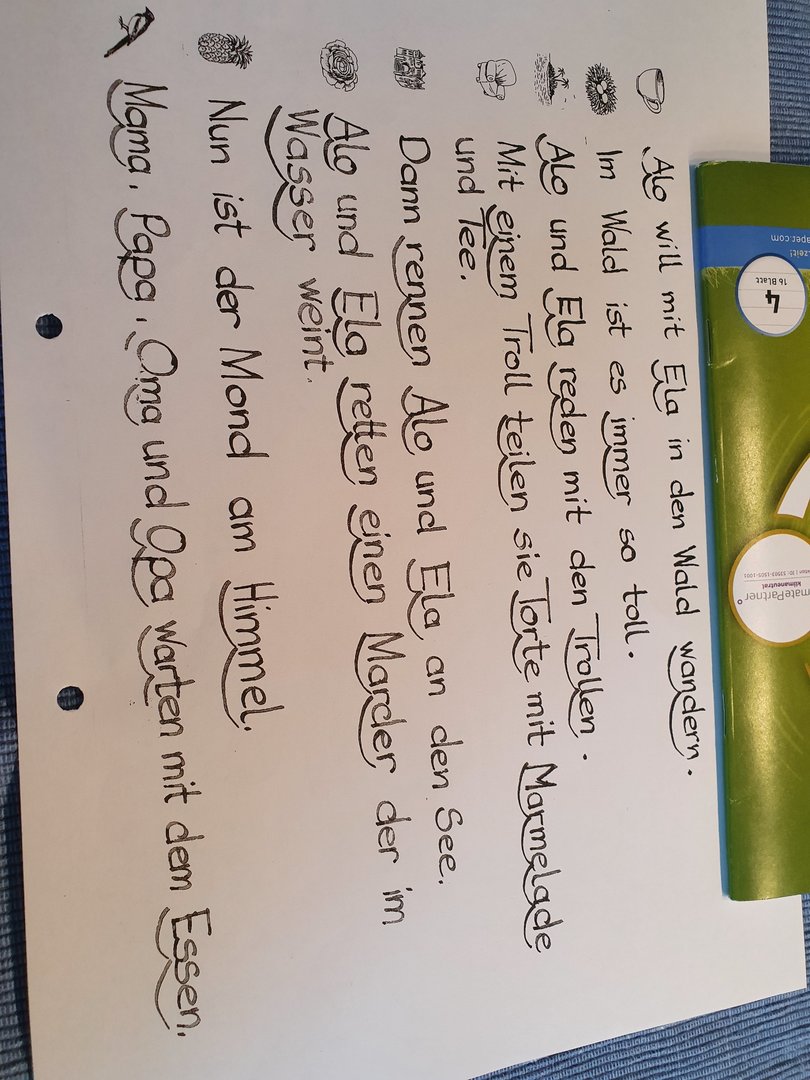 Alo will mit Ela in den Wald wandern.
Im Wald ist es immer so toll.
Alo und Ela reden mit den Trollen.
Mit einem Troll teilen sie Torte mit Marmelade
und Tee.
Dann rennen Alo und Ela an den See.
Alo und Ela retten einen Marder der im
Wasser weint.
Nun ist der Mond am Himmel.
Mama, Papa, Oma und Opa warten mit dem Essen.
zeit!
aper.com
4
16 Blatt
matePartner
klimaneutral
53503-1505-1001